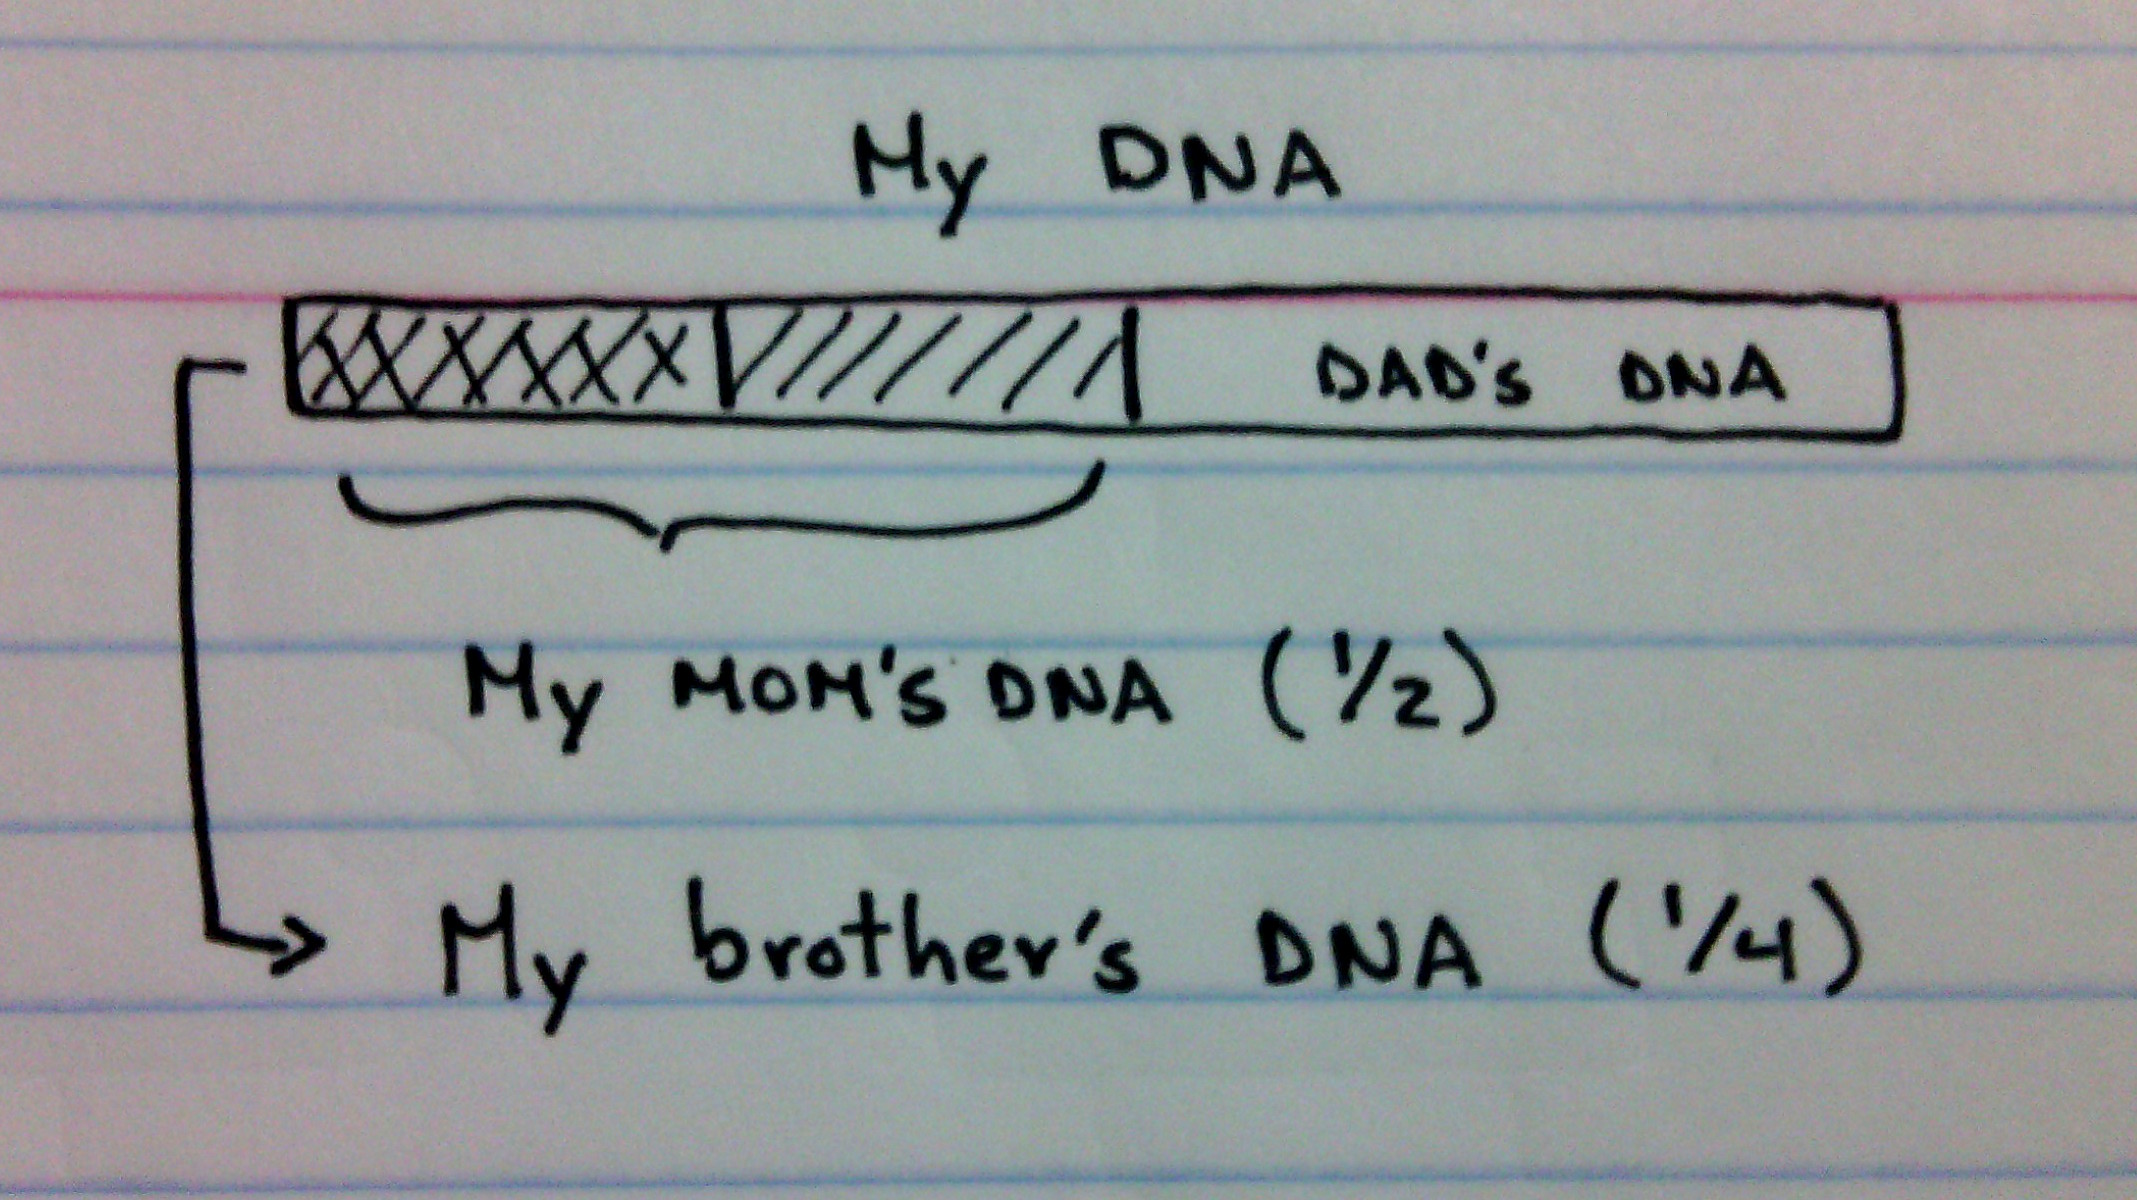 My DNA
DAD's DNA
My MOM's DNA (1/2)
My brother's DNA (1/4)